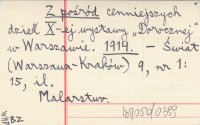 Z pośród cenniejszych
dzieł X-ej wystawy „Dorocznej"
w Warszawie. 1914. – Świat
(Warszawa-Kraków) 9, nr 1:
15, il.
Malarstwo.
BZ